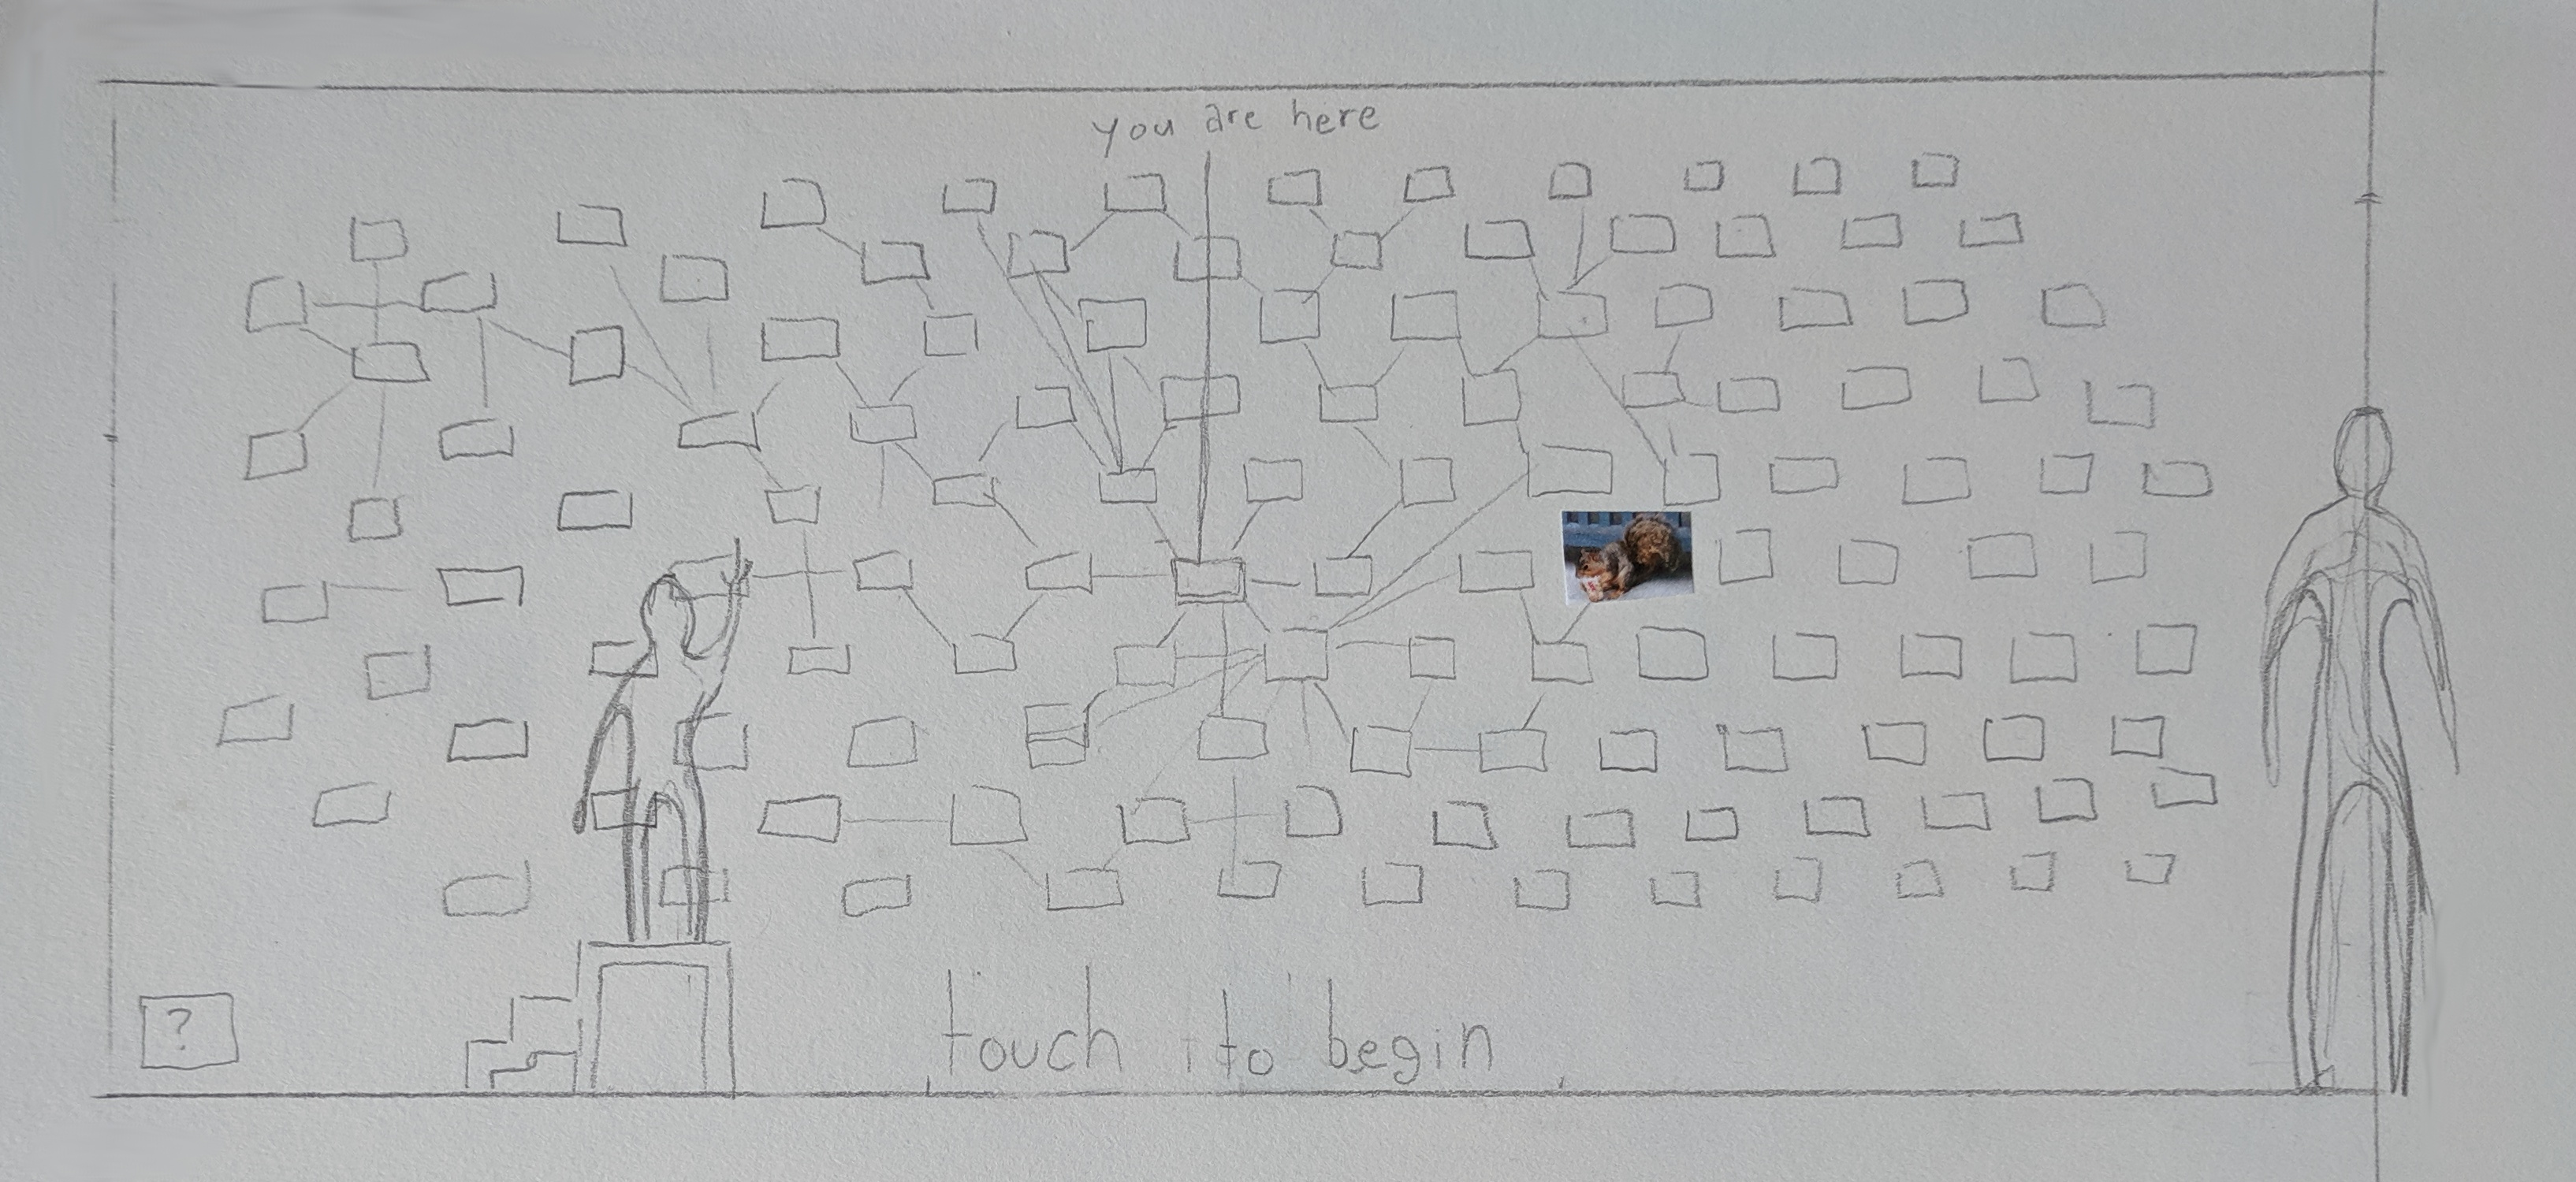 you are here
?
touch to begin